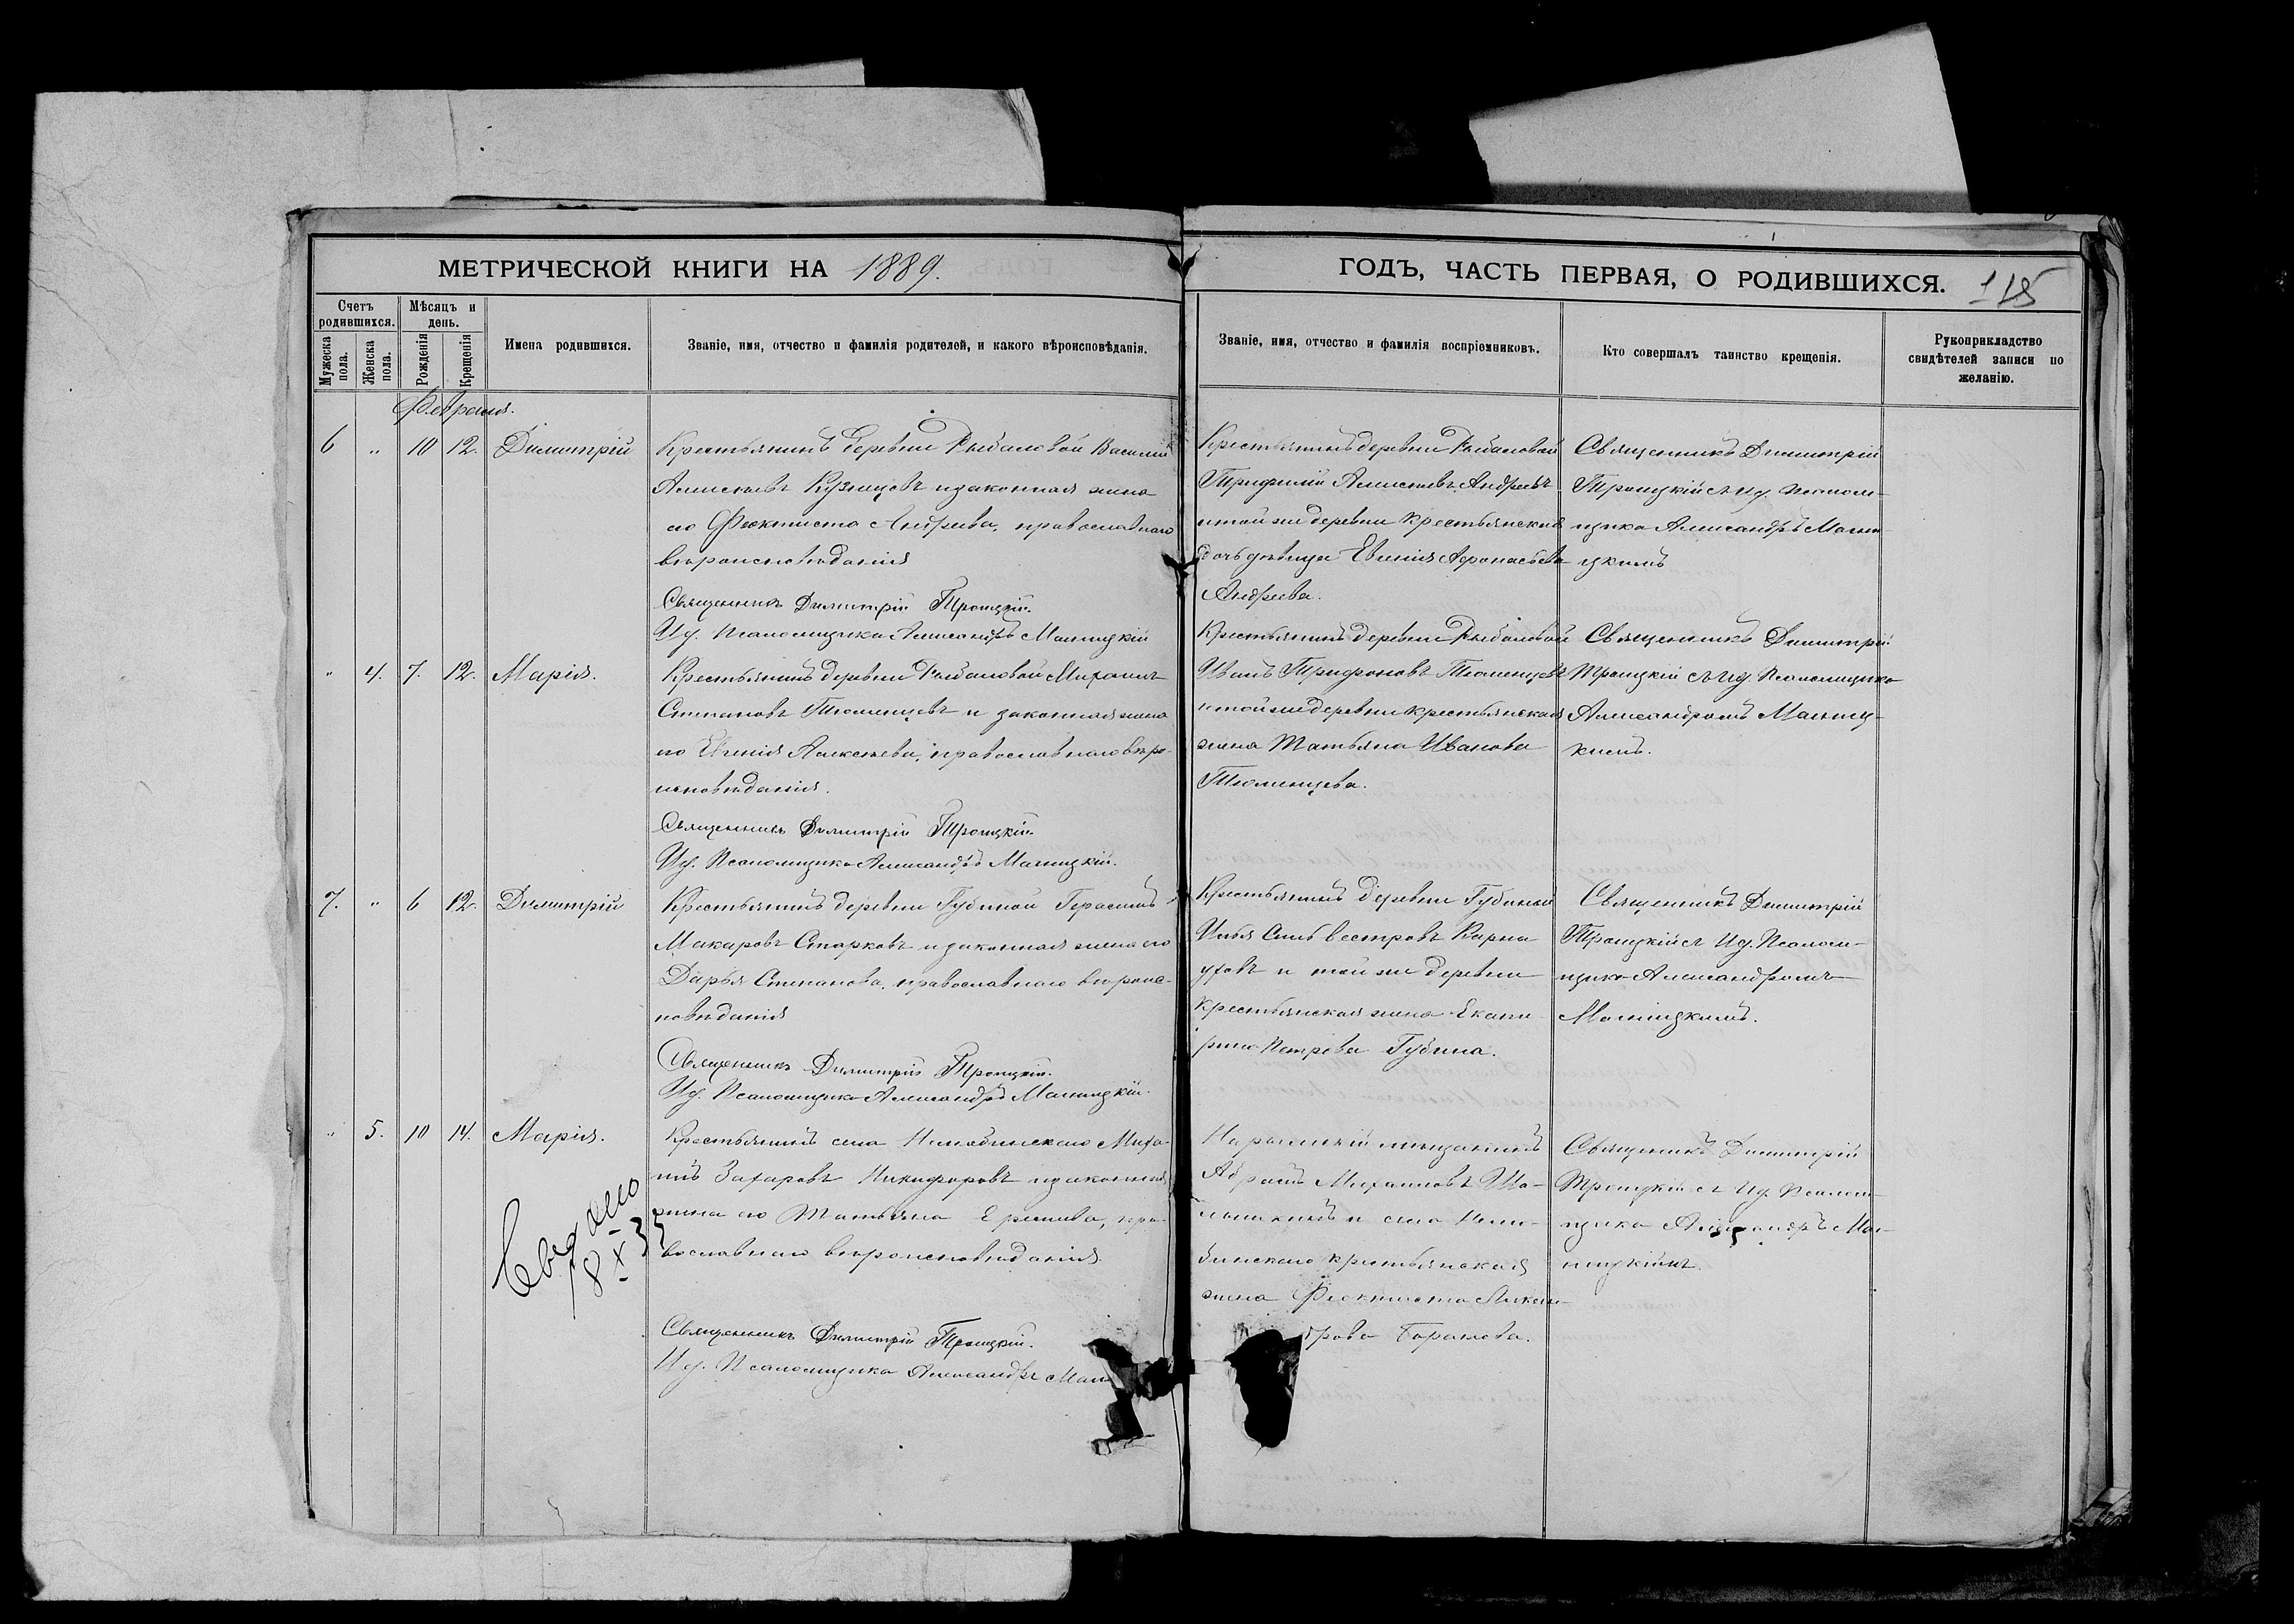 МЕТРИЧЕСКОЙ КНИГИ НА 1889.
Счетъ родившихся.
Мужеска пола.
Женска пола.
Мѣсяцъ и день.
Рожденія
Крещенія
Имена родившихся.
Званіе, имя, отчество и фамилія родителей, и какого вѣроисповѣданія.
Февраля.
6 " 10 12. Димитрій
Крестьянинъ деревни Рыбаловой Василій
Алексѣевъ Кузнецовъ и законная жена
его Феоктиста Андреева, православнаго
вѣроисповѣданія
Священникъ Димитрій Троицкій.
И. д. Псаломщика Александръ
" 4. 7. 12. Марія.
Крестьянинъ деревни Рыбаловой Михаилъ
Степановъ Тюменцевъ и законная жена
его Евгенія Алексѣева, православнаго вѣро-
исповѣданія.
Священникъ Димитрій Троицкій.
И. д. Псаломщика Александръ
7. " 6 12. Димитрій
Крестьянинъ деревни Губиной Герасимъ
Макаровъ Старковъ и законная жена его
Дарья Степанова, православнаго вѣроис-
повѣданія
Священникъ Димитрій Троицкій.
И. д. Псаломщика Александръ
" 5. 10 14. Марія.
Крестьянинъ села Нелюбинскаго Миха-
илъ Захаровъ Никифоровъ и законная
жена его Татьяна Ермиева, пра-
вославнаго вѣроисповѣданія.
Священникъ Димитрій Троицкій.
И. д. Псаломщика Александръ
18 X
ГОДЪ, ЧАСТЬ ПЕРВАЯ, О РОДИВШИХСЯ. 115
Званіе, имя, отчество и фамилія воспріемниковъ.
Кто совершалъ таинство крещенія.
Рукоприкладство свидѣтелей записи по желанію.
Крестьянинъ деревни Рыбаловой
Трифилій Алексѣевъ Андреевъ
и той же деревни крестьянская
дочь дѣвица Евгенія Афонасьева
Андреева.
Священникъ Димитрій
Троицкій съ И. д. Псалом-
щика Александръ
цкимъ
Крестьянинъ деревни Рыбаловой
Иванъ Трифоновъ Тюменцевъ
и той же деревни крестьянская
жена Татьяна Иванова
Тюменцева.
Священникъ Димитрій
Троицкій съ И. д. Псаломщика
Александромъ
кимъ.
Крестьянинъ деревни Губиной
Илья Сильвестровъ Карна
уховъ и той же деревни
крестьянская жена Екате
рина Петрова Губина.
Священникъ Димитрій
Троицкій съ И. д. Псалом-
щика Александромъ
Нарымскій мѣщанинъ
Абрамъ Михаиловъ
и села Нелю-
бинскаго крестьянская
жена Феоктиста Алексан-
дрова Баранова.
Священникъ Димитрій
Троицкій съ И. д. Псалом-
щика Александръ